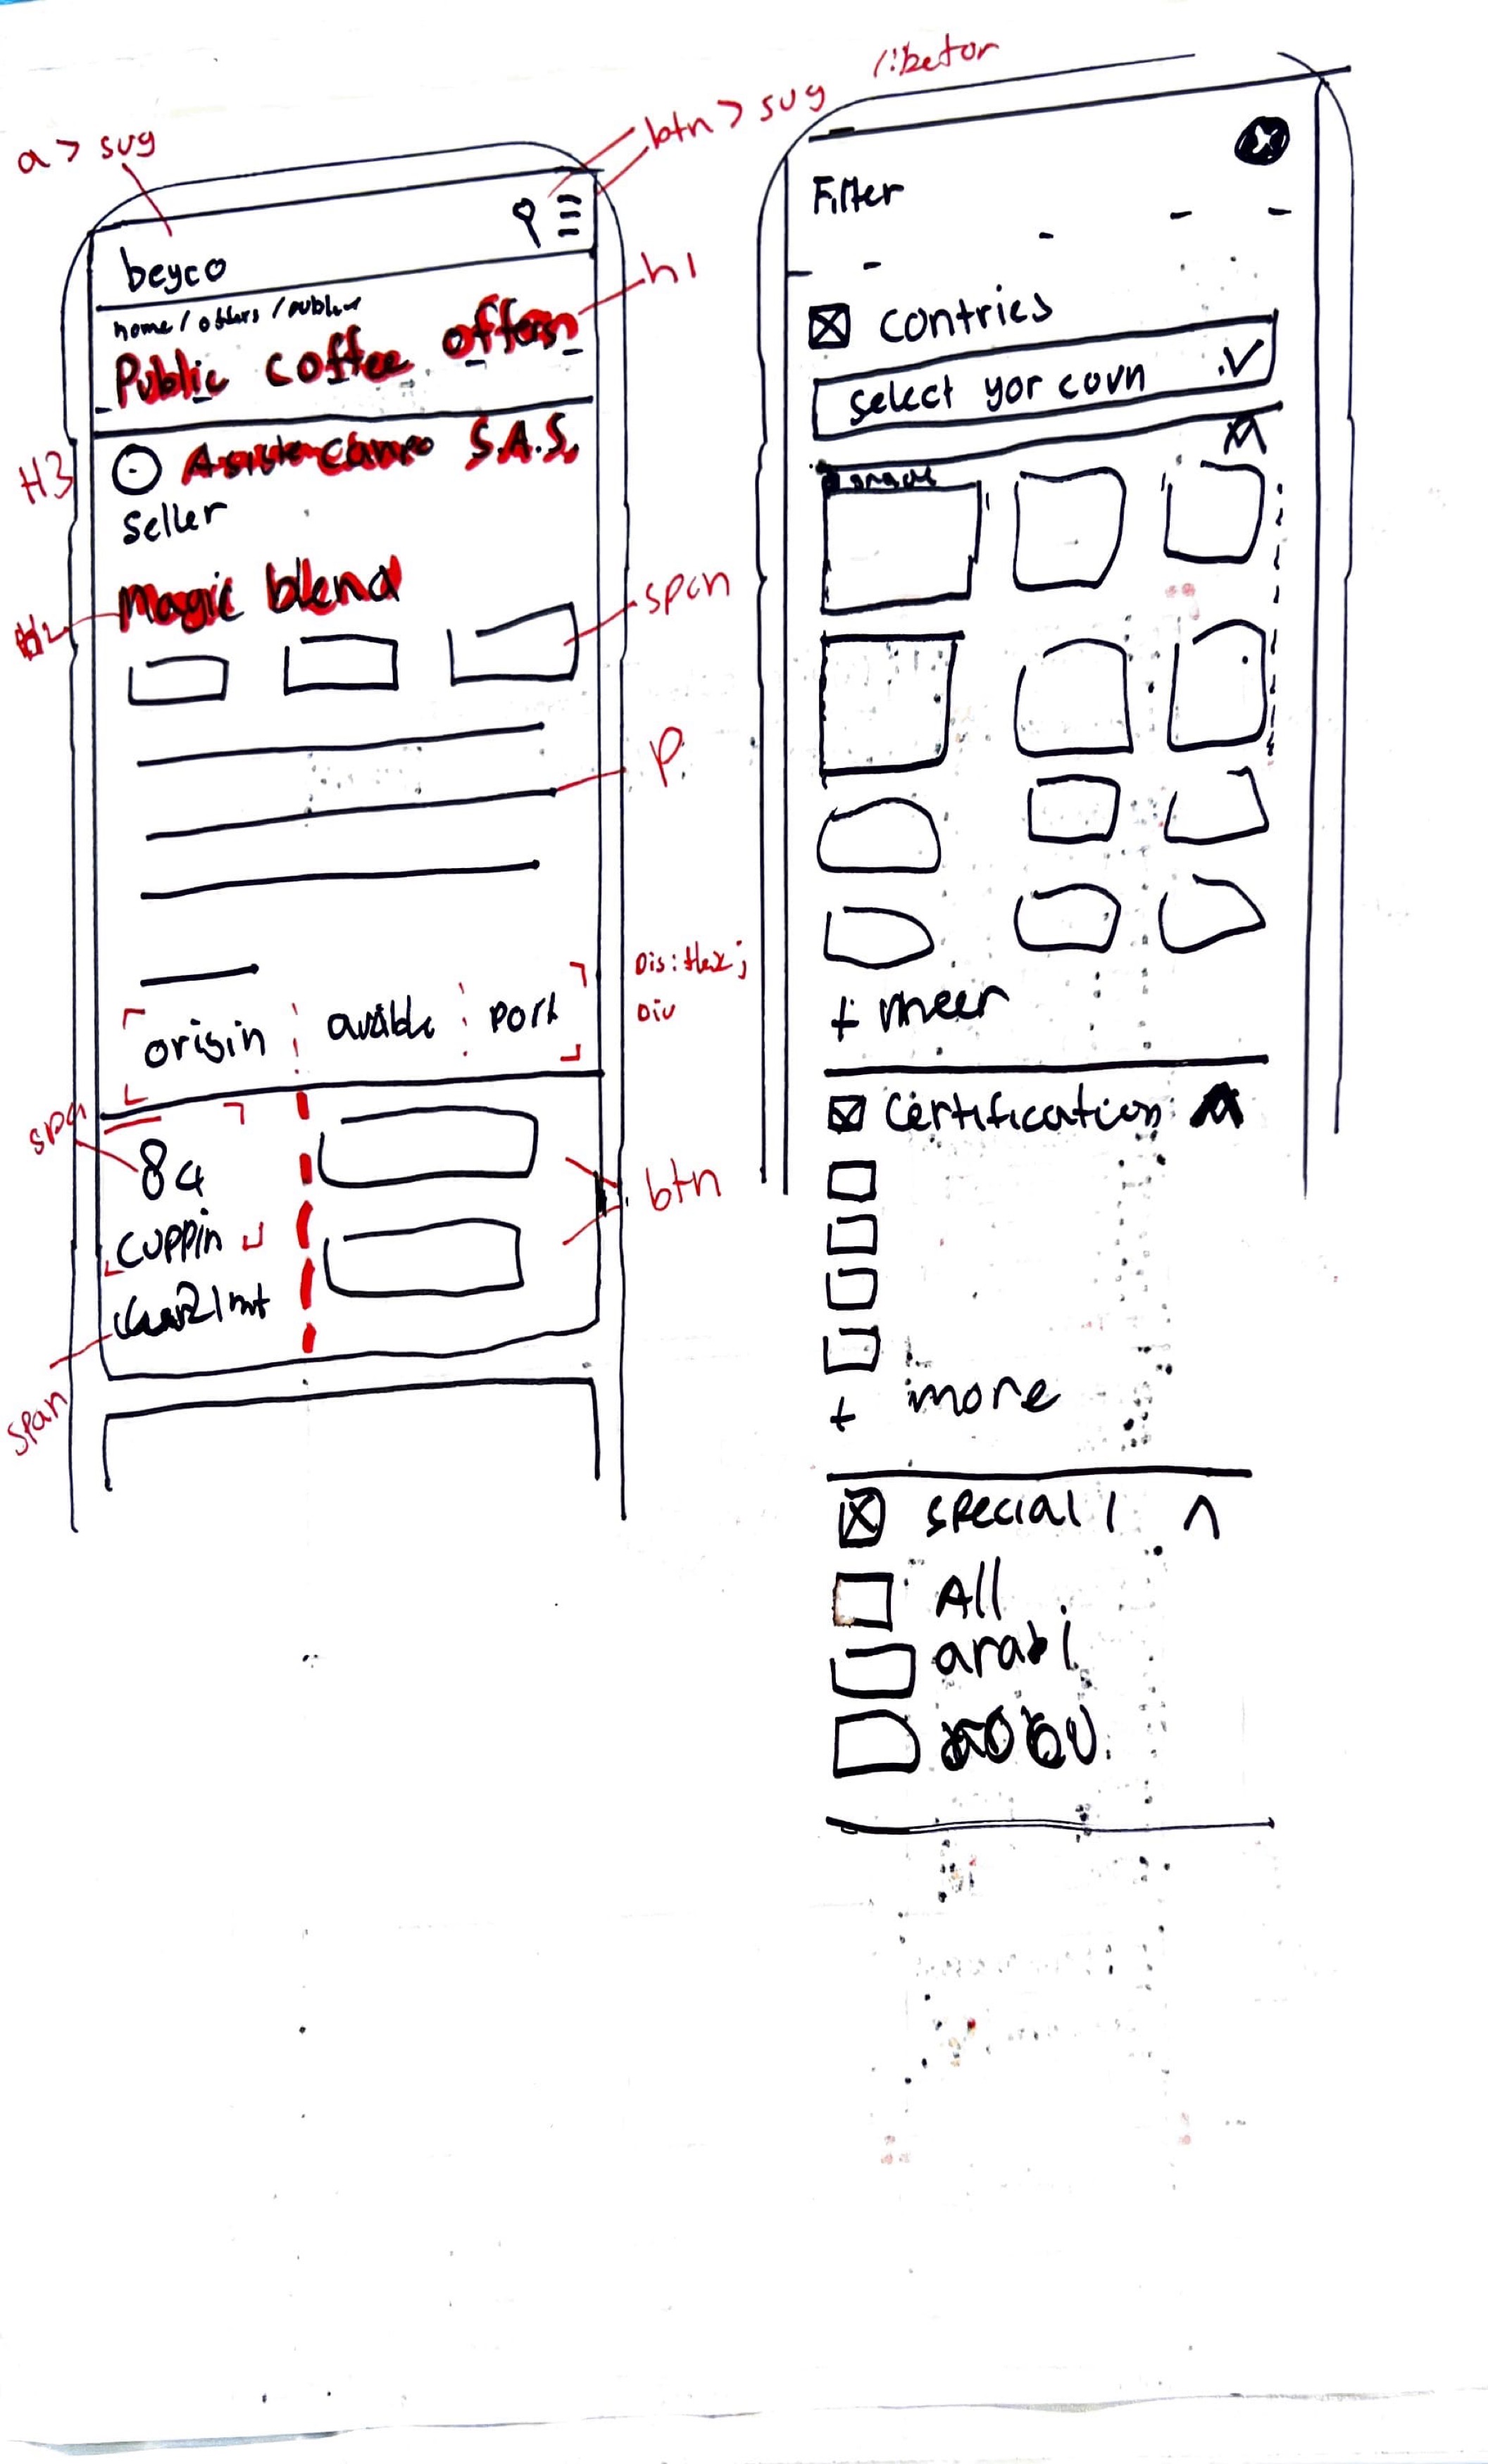 a > svg
btn > svg
beyco
home / offers / public
h1
Public coffee offers
H3
S.A.S.
Seller
Magic blend
H2
span
p
Dis: flex;
Div
origin
port
84
cuppin
btn
span
Filter
contries
select yor coun
+ meer
certification
+ more
special
All
arabi